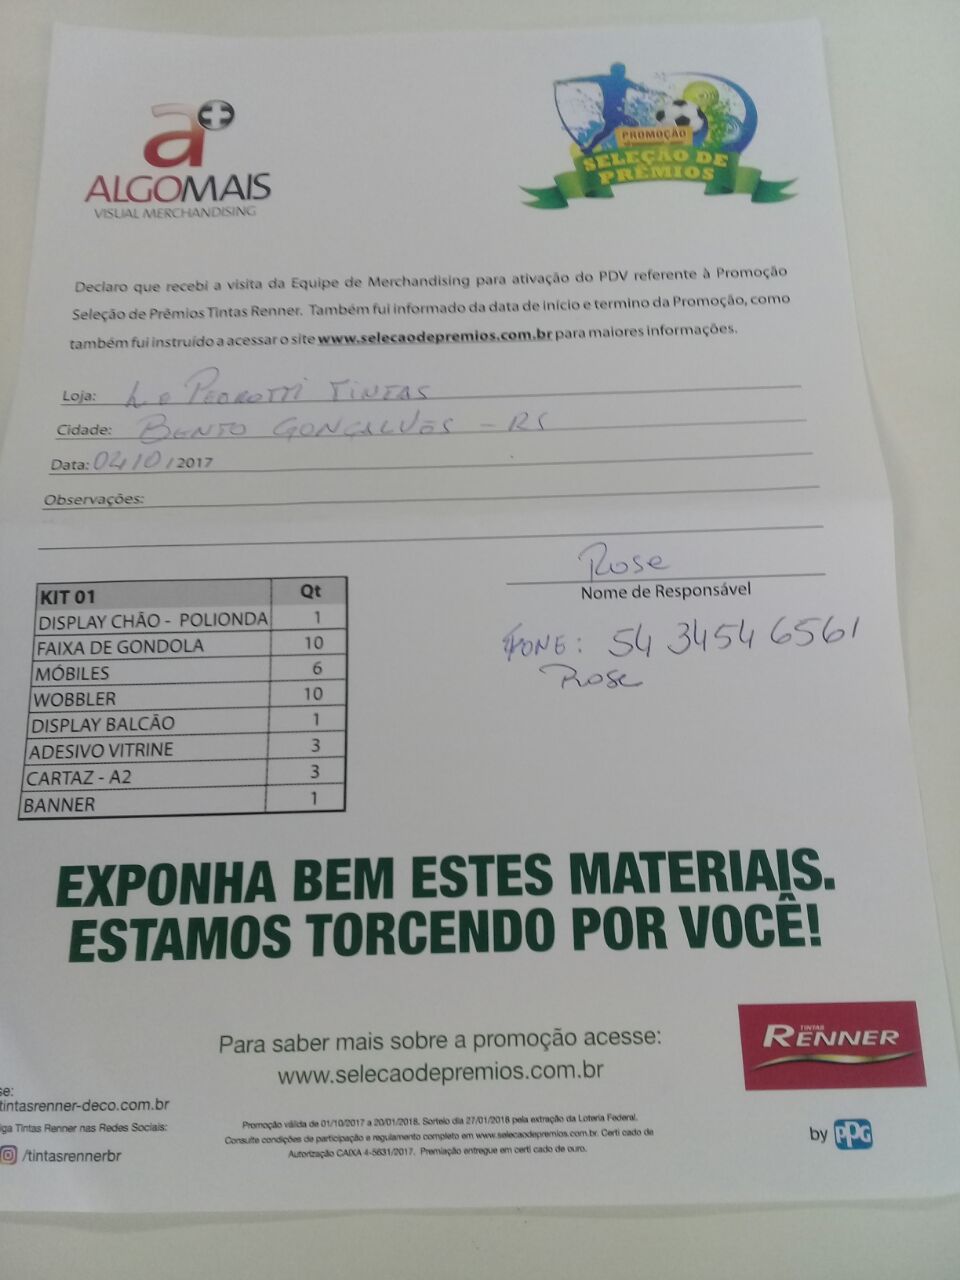 a+
ALGOMAIS
VISUAL MERCHANDISING
PROMOÇÃO
SELEÇÃO DE
PRÊMIOS
Declaro que recebi a visita da Equipe de Merchandising para ativação do PDV referente à Promoção
Seleção de Prêmios Tintas Renner. Também fui informado da data de início e termino da Promoção, como
também fui instruído a acessar o site www.selecaodepremios.com.br para maiores informações.
Loja: Pedrotti Tintas
Cidade: Bento Gonçalves - RS
Data: 04/10/2017
Observações:
Rose
Nome de Responsável
FONE: 54 3454 6561
Rose
KIT 01 Qt
DISPLAY CHÃO - POLIONDA 1
FAIXA DE GONDOLA 10
MÓBILES 6
WOBBLER 10
DISPLAY BALCÃO 1
ADESIVO VITRINE 3
CARTAZ - A2 3
BANNER 1
EXPONHA BEM ESTES MATERIAIS.
ESTAMOS TORCENDO POR VOCÊ!
Para saber mais sobre a promoção acesse:
www.selecaodepremios.com.br
TINTAS
RENNER
se:
tintasrenner-deco.com.br
iga Tintas Renner nas Redes Sociais:
/tintasrennerbr
Promoção válida de 01/10/2017 a 20/01/2018. Sorteio dia 27/01/2018 pela extração da Loteria Federal.
Consulte condições de participação e regulamento completo em www.selecaodepremios.com.br. Certi cado de
Autorização CAIXA 4-5631/2017. Premiação entregue em certi cado de ouro.
by PPG